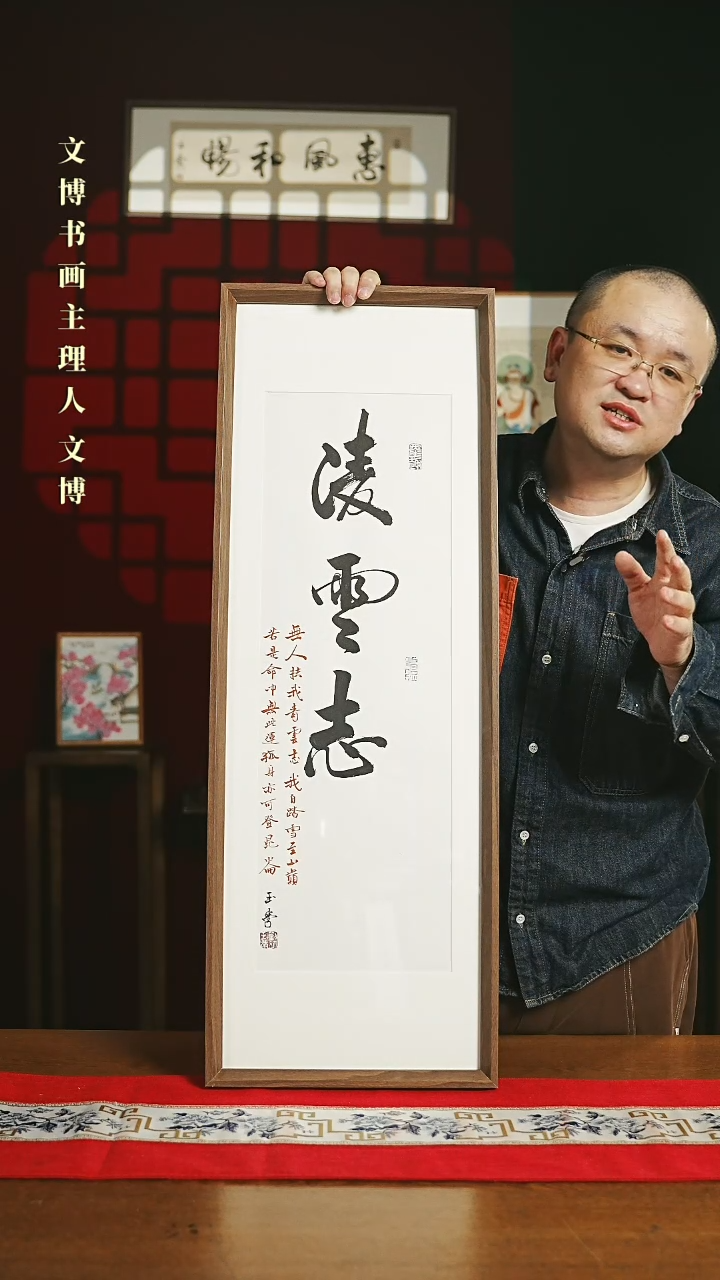 文博书画主理人文博
惠風和暢
凌雲志
無人扶我青雲志 我自踏雪至山巔
若是命中無此運孤身亦可登昆崙